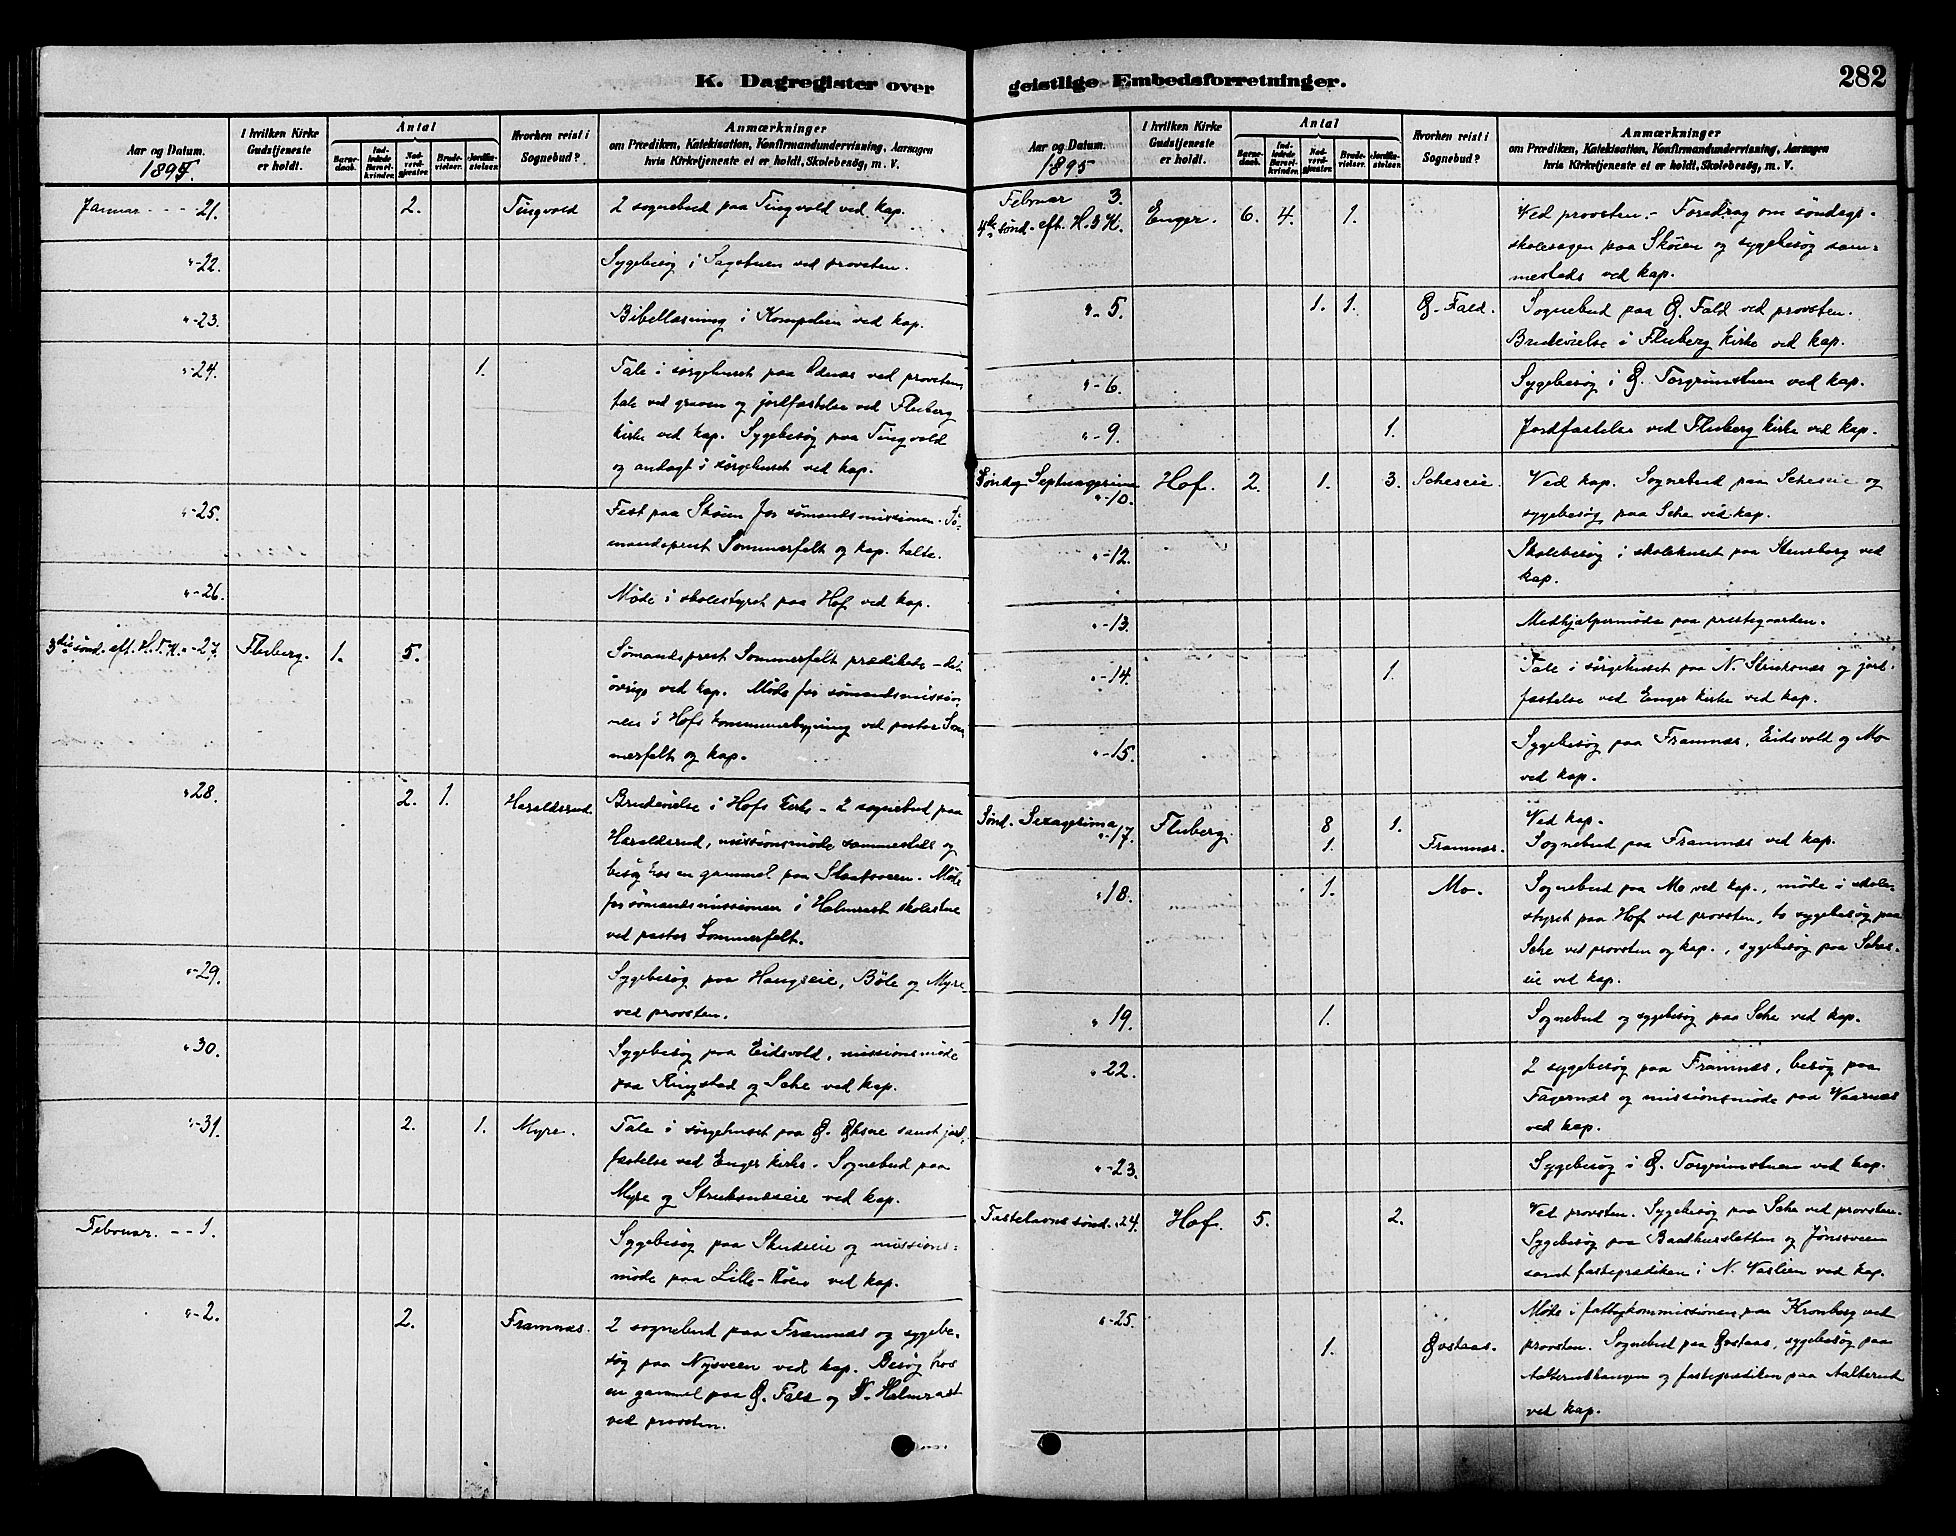 K. Dagregister over
Aar og Datum.
1895.
I hvilken Kirke
Gudstjeneste
er holdt.
Antal
Barnedaab.
Indledede Barselkvinder.
Nadverdgjæster.
Brudevielser.
Jordfæstelser.
Hvorhen reist i
Sognebud?
Anmærkninger
om Prædiken, Katekisation, Konfirmandundervisning, Aarsagen
hvis Kirketjeneste ei er holdt, Skolebesøg, m. V.
Januar - - - 21. 2. Tingvold 2 sognebud paa Tingvold ved kap.
"-22. Sygebesøg i Sagstuen ved provsten.
"-23. Bibellæsning i Kompelien ved kap.
"-24. 1. Tale i sørgehuset paa Odnæs ved provsten,
tale ved graven og jordfæstelse ved Fluberg
kirke ved kap. Sygebesøg paa Tingvold
og andagt i sørgehuset ved kap.
"-25. Fest paa Skøien for sømandsmissionen. Sø-
mandsprest Sommerfelt og kap. talte.
"-26. Møde i skolestyret paa Hof ved kap.
3die sønd. eft. H.3.K. "-27. Fluberg. 1. 5. Sømandsprest Sommerfelt prædikede - det
øvrige ved kap. Møde for sømandsmissio-
nen i Hofs kommunebygning ved pastor Som-
merfelt og kap.
"28. 2. 1. Haraldsrud. Brudevielse i Hofs kirke - 2 sognebud paa
Haraldsrud, missionsmøde sammesteds og
besøg hos en gammel paa Staatsveen. Møde
for sømandsmissionen i Halmrast skolestue
ved pastor Sommerfelt.
"-29. Sygebesøg paa Haugseie, Bøle og Myre
ved provsten.
"30. Sygebesøg paa Eidsvold, missionsmøde
paa Ringstad og Sche ved kap.
"-31. 2. 1. Myre. Tale i sørgehuset paa Ø. Øksne samt jord-
fæstelse ved Enger kirke. Sognebud paa
Myre og Struksnæseie ved kap.
Februar. - - 1. Sygebesøg paa Skudeie og missions-
møde paa Lille-Røen ved kap.
"-2. 2. Framnæs. 2 sognebud paa Framnæs og sygebe-
søg paa Nysveen ved kap. Besøg hos
en gammel paa Ø. Fald og N. Halmrast
ved provsten.
geistlige Embedsforretninger.
282
Aar og Datum.
1895
I hvilken Kirke
Gudstjeneste
er holdt.
Antal
Barnedaab.
Indledede Barselkvinder.
Nadverdgjæster.
Brudevielser.
Jordfæstelser.
Hvorhen reist i
Sognebud?
Anmærkninger
om Prædiken, Katekisation, Konfirmandundervisning, Aarsagen
hvis Kirketjeneste ei er holdt, Skolebesøg, m. V.
Februar 3.
4de sønd. eft. H.3.K. Enger. 6. 4. 1. Ved provsten. - Foredrag om søndags-
skolesagen paa Skøien og sygebesøg sam-
mesteds ved kap.
"- 5. 1. 1. Ø. Fald. Sognebud paa Ø. Fald ved provsten.
Brudevielse i Fluberg kirke ved kap.
"- 6. Sygebesøg i Ø. Torgrimstuen ved kap.
"- 9. 1. Jordfæstelse ved Fluberg kirke ved kap.
Søndag Septuagesima
"-10. Hof. 2. 1. 3. Scheseie. Ved kap. Sognebud paa Scheseie og
sygebesøg paa Sche ved kap.
"-12. Skolebesøg i skolehuset paa Stensborg ved
kap.
"-13. Medhjælpermøde paa prestegaarden.
"-14. 1. Tale i sørgehuset paa N. Struksnæs og jord-
fæstelse ved Enger kirke ved kap.
"-15. Sygebesøg paa Framnæs, Eidsvold og Mo
ved kap.
Sønd. Sexagesima
"-17. Fluberg. 8 1. Ved kap.
1. Framnæs. Sognebud paa Framnæs ved kap.
"18. 1. Mo. Sognebud paa Mo ved kap., møde i skole-
styret paa Hof ved provsten, to sygebesøg paa
Sche ved provsten og kap., sygebesøg paa Sches-
eie ved kap.
"19. 1. Sognebud og sygebesøg paa Sche ved kap.
"22. 2 sygebesøg paa Framnæs, besøg paa
Fagernæs og missionsmøde paa Vaarnæs
ved kap.
"-23. Sygebesøg i Ø. Torgrimstuen ved kap.
Fastelavnssønd. 24. Hof. 5. 2. Ved provsten. Sygebesøg paa Sche ved provsten.
Sygebesøg paa Baadhussletten og Jønssveen
samt fasteprædiken i N. Vaslien ved kap.
"-25. Møde i fattigkommissionen paa Kronborg ved
1. Øvstaas. provsten. Sognebud paa Øvstaas, sygebesøg paa
Aalterudhaugen og fasteprædiken paa Aalterud
ved kap.